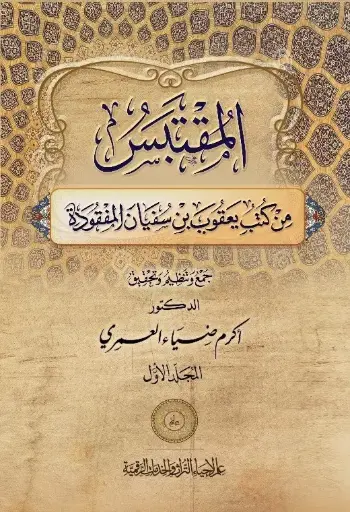 المقتبس
من كتب يعقوب بن سفيان المفقودة
جمع وتنظيم وتحقيق
الدكتور
أكرم ضياء العمري
المجلد الأول
علم لإحياء التراث والخدمات الرقمية